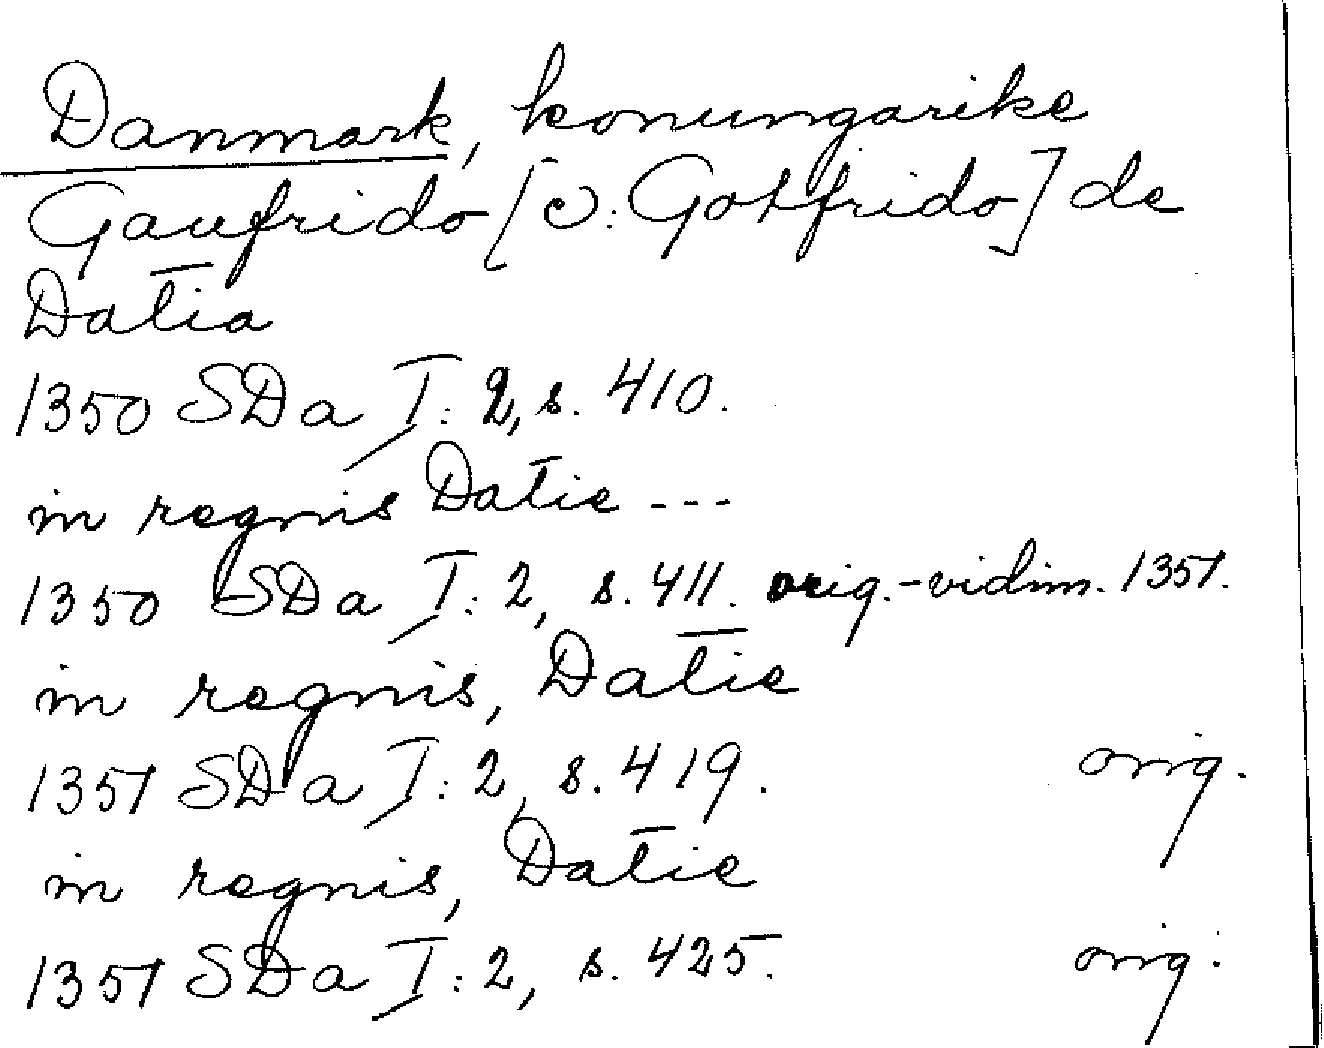 Danmark, konungarike
Gaufrido [o: Gotfrido] de
Datia
1350 SDa I: 2, s. 410.
in regnis Datie ---
1350 SDa I: 2, s. 411. orig.-vidim. 1351.
in regnis, Datie
1351 SDa I: 2, s. 419. orig.
in regnis, Datie
1351 SDa I: 2, s. 425. orig.